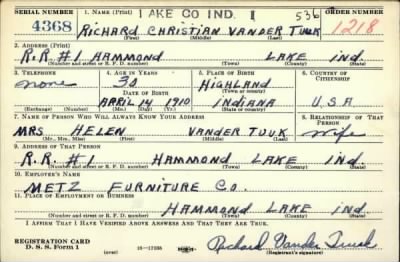 SERIAL NUMBER 1. NAME (Print) LAKE CO IND. 1 536 ORDER NUMBER
4368 RICHARD CHRISTIAN VANDER TUUK 1218
(First) (Middle) (Last)
2. ADDRESS (Print)
R.R #1 HAMMOND LAKE IND.
(Number and street or R. F. D. number) (Town) (County) (State)
3. TELEPHONE 4. AGE IN YEARS 5. PLACE OF BIRTH 6. COUNTRY OF CITIZENSHIP
none 30 HIGHLAND
DATE OF BIRTH (Town or county)
APRIL 14 1910 INDIANA U.S.A
(Exchange) (Number) (Mo.) (Day) (Yr.) (State or country)
7. NAME OF PERSON WHO WILL ALWAYS KNOW YOUR ADDRESS 8. RELATIONSHIP OF THAT PERSON
MRS HELEN VANDER TUUK wife
(Mr., Mrs., Miss) (First) (Middle) (Last)
9. ADDRESS OF THAT PERSON
R.R. #1 HAMMOND LAKE IND.
(Number and street or R. F. D. number) (Town) (County) (State)
10. EMPLOYER'S NAME
METZ FURNITURE CO.
11. PLACE OF EMPLOYMENT OR BUSINESS
HAMMOND LAKE IND.
(Number and street or R. F. D. number) (Town) (County) (State)
I AFFIRM THAT I HAVE VERIFIED ABOVE ANSWERS AND THAT THEY ARE TRUE.
REGISTRATION CARD
D. S. S. Form 1 16—17105 Richard Vander Tuuk
(Registrant's signature)